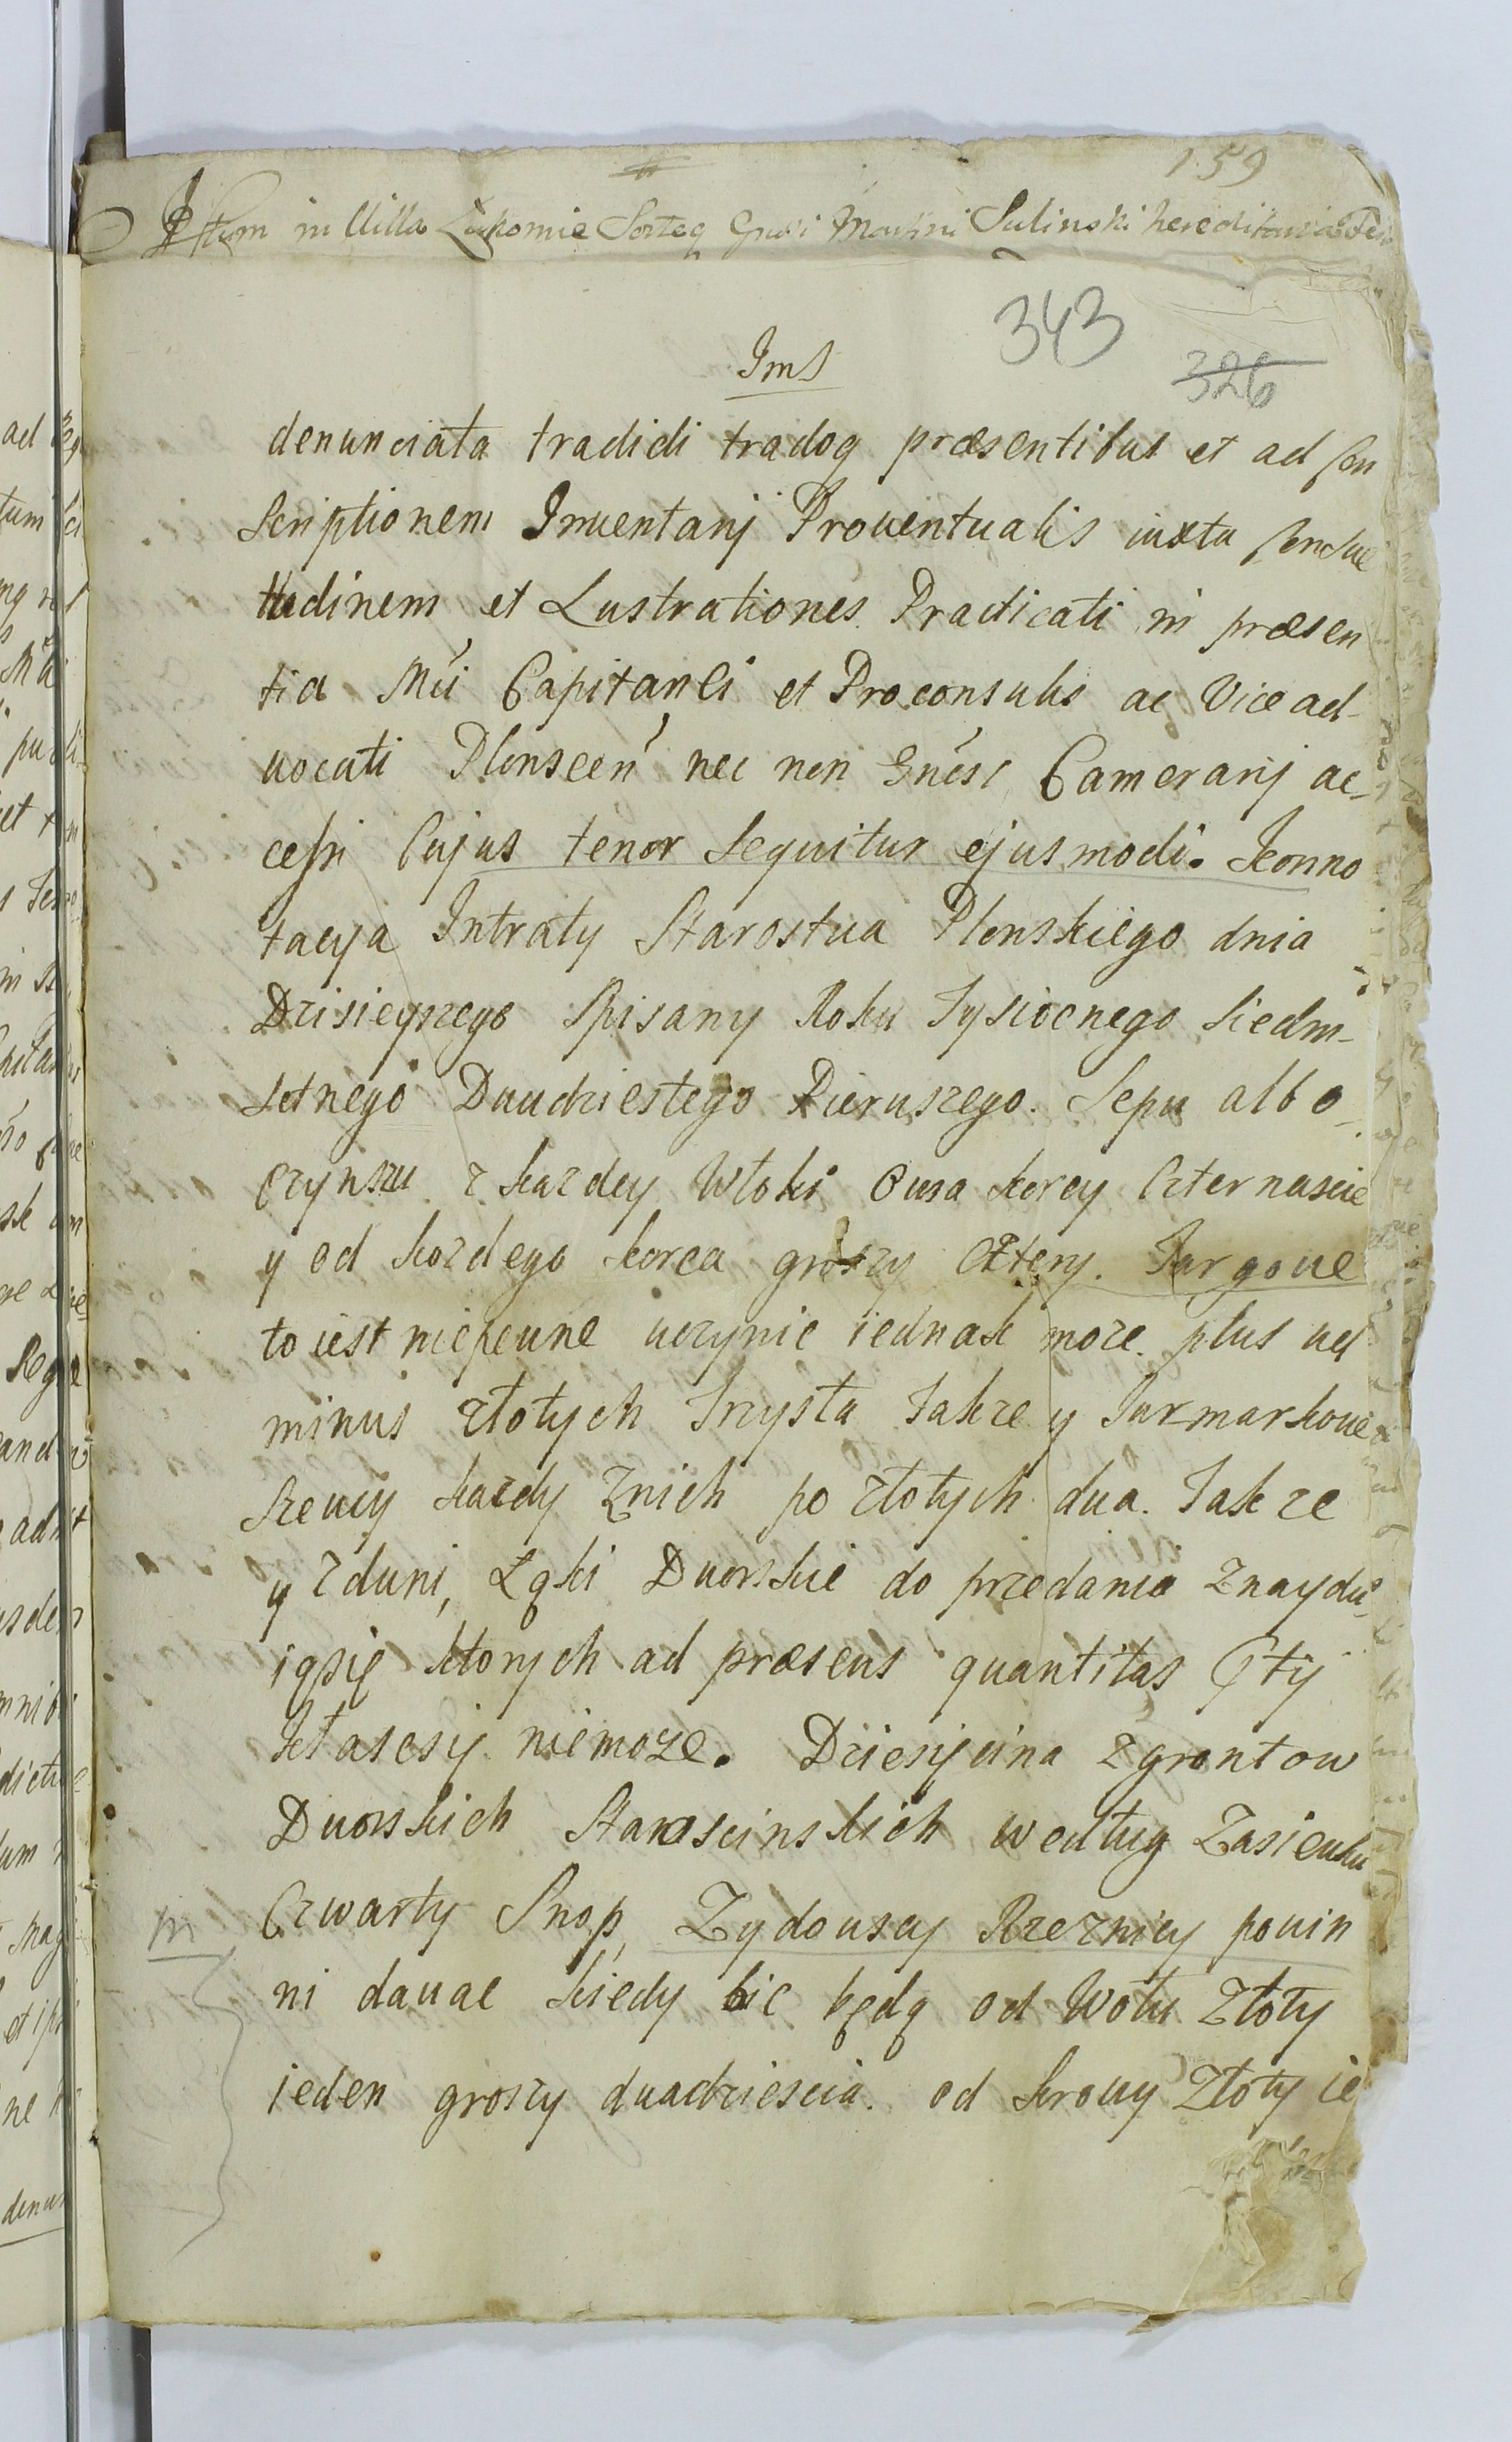 159
Actum in Villa Łukomie Sorteq Gnsi Martini Sulinski hereditaria
343
Jms
326
denunciata tradidi tradoq præsentibus et ad con
scriptionem Inuentarij Prouentualis iuxta consue
tudinem et Lustrationes Practicati in præsen
tia Mci Capitanei et Proconsulis ac Vice ad-
uocati Plonscen nec non Gnosi Camerarij ac-
cessi Cujus tenor sequitur ejusmodi. Konno
tacyja Intraty Starostua Plonskiego dnia
Dzisieyszego Spisany Roku Tysiocnego Siedm-
setnego Duudziestego Pieruszego. Sepu albo
czynszu z kazdey Włoki Ousa korcy Czternascie
y od kozdego korca groszy cztery. Targoue
to iest niepeune uczynic iednak moze plus uel
minus złotych Trzysta Takze y Jarmarkoue
Szeucy kazdy Znich po złotych dua. Takze
y zduni, Łąki Duorskie do przedania Znaydu-
iąsię ktorych ad præsens quantitas
kłascsię niemoze. Dziesięcina zgrontow
Duorskich Staroscinskich według Zasieuku
m
Czwarty Snop, Zydouscy Rzeznicy pouin
ni dauac kiedy bic będą od Wołu Złoty
ieden groszy duadziescia. od krouy Złoty ie